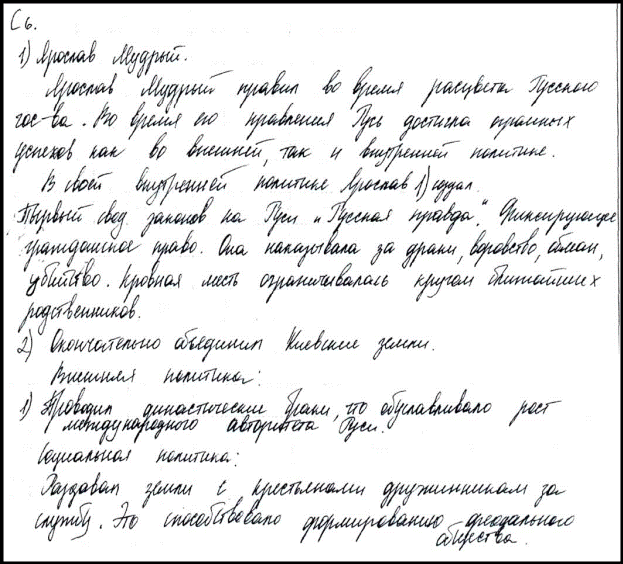 С6.
1) Ярослав Мудрый.
Ярослав Мудрый правил во время расцвета Русского
гос-ва. Во время его правления Русь достигла огромных
успехов как во внешней, так и внутренней политике.
В своей внутренней политике Ярослав 1) создал
Первый свод законов на Руси „Русская правда“. Фиксирующее
гражданское право. Она наказывала за драки, воровство, обман,
убийство. Кровная месть ограничивалась кругом ближайших
родственников.
2) Окончательно объединил Киевские земли.
Внешняя политика:
1) Проводил династические браки, что обуславливало рост
международного авторитета Руси.
Социальная политика:
Раздавал земли с крестьянами дружинникам за
службу. Это способствовало формированию феодального
общества.